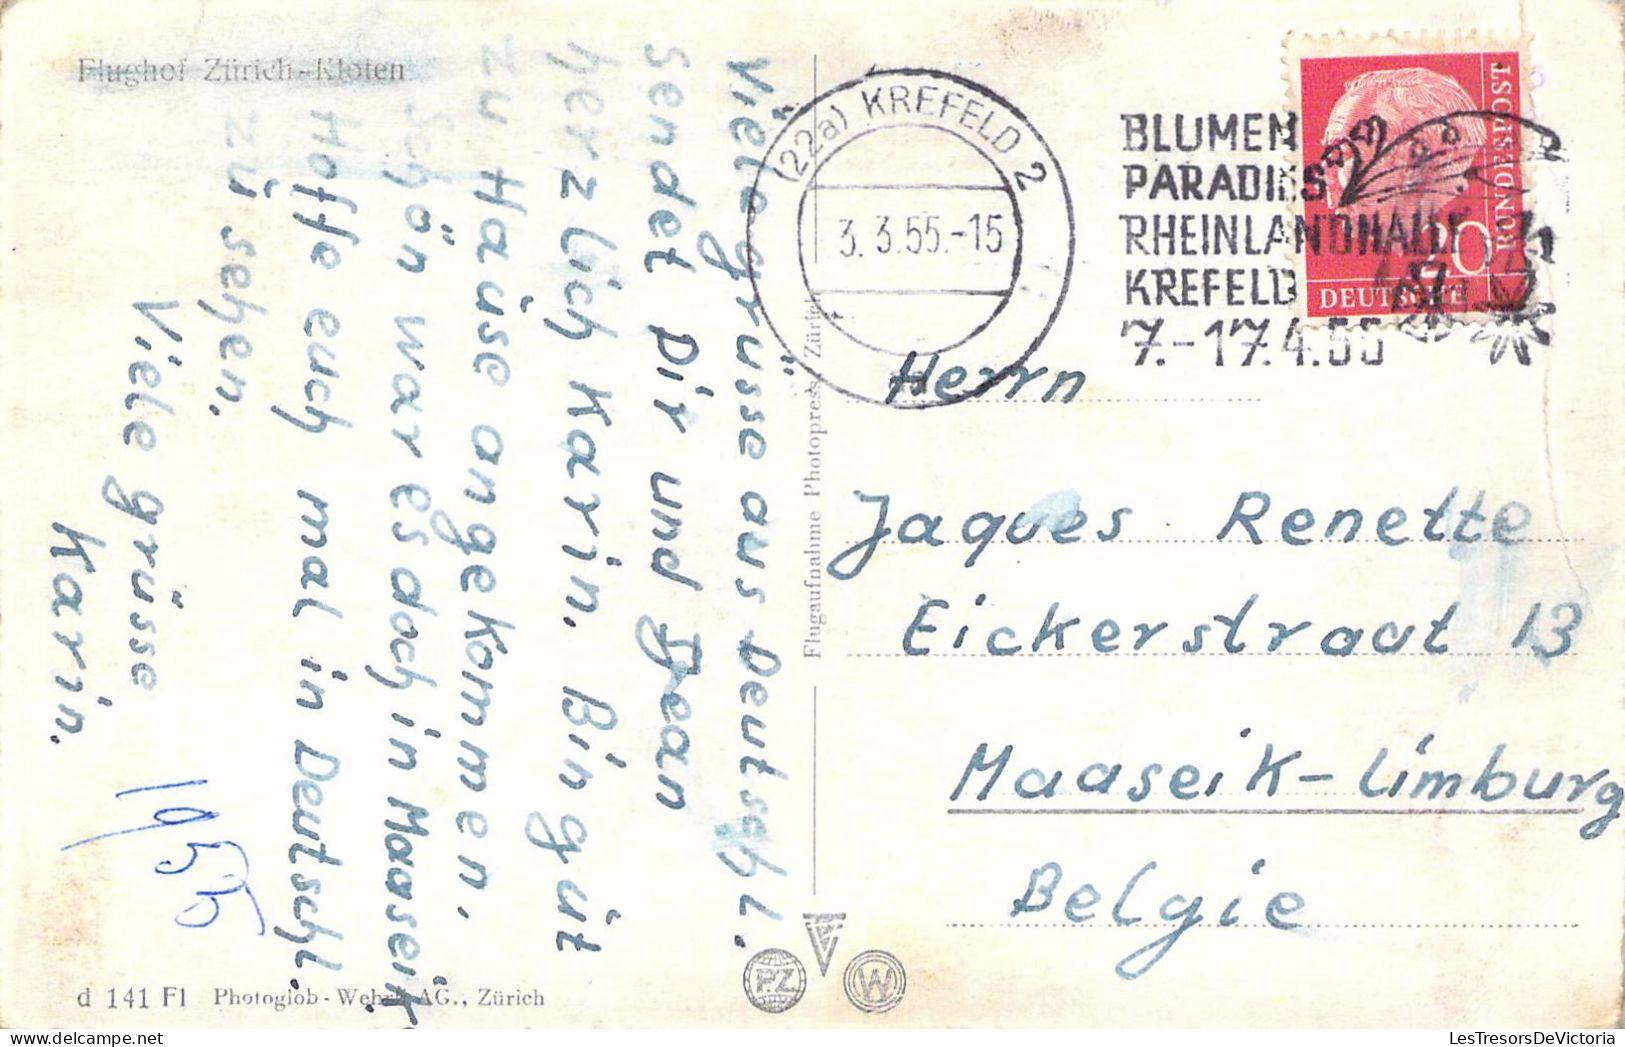 Flughof Zürich-Kloten
Viele grüsse aus Deutschl.
sendet Dir und Jean
herzlich Karin. Bin gut
zu Hause angekommen,
schön war es doch in Maaseik
Hoffe euch mal in Deutschl.
zu sehen.
Viele grüsse
Karin.
1955
d 141 Fl Photoglob-Wehrli AG., Zürich
Flugaufnahme Photopress Zürich
PZ
W
(22a) KREFELD 2
3.3.55.-15
BLUMEN
PARADIES
RHEINLANDHALLE
KREFELD
7.-17.4.55
DEUTSCHE
BUNDESPOST
20
Herrn
Jaques Renette
Eickerstraat 13
Maaseik-Limburg
Belgie
LesTresorsDeVictoria